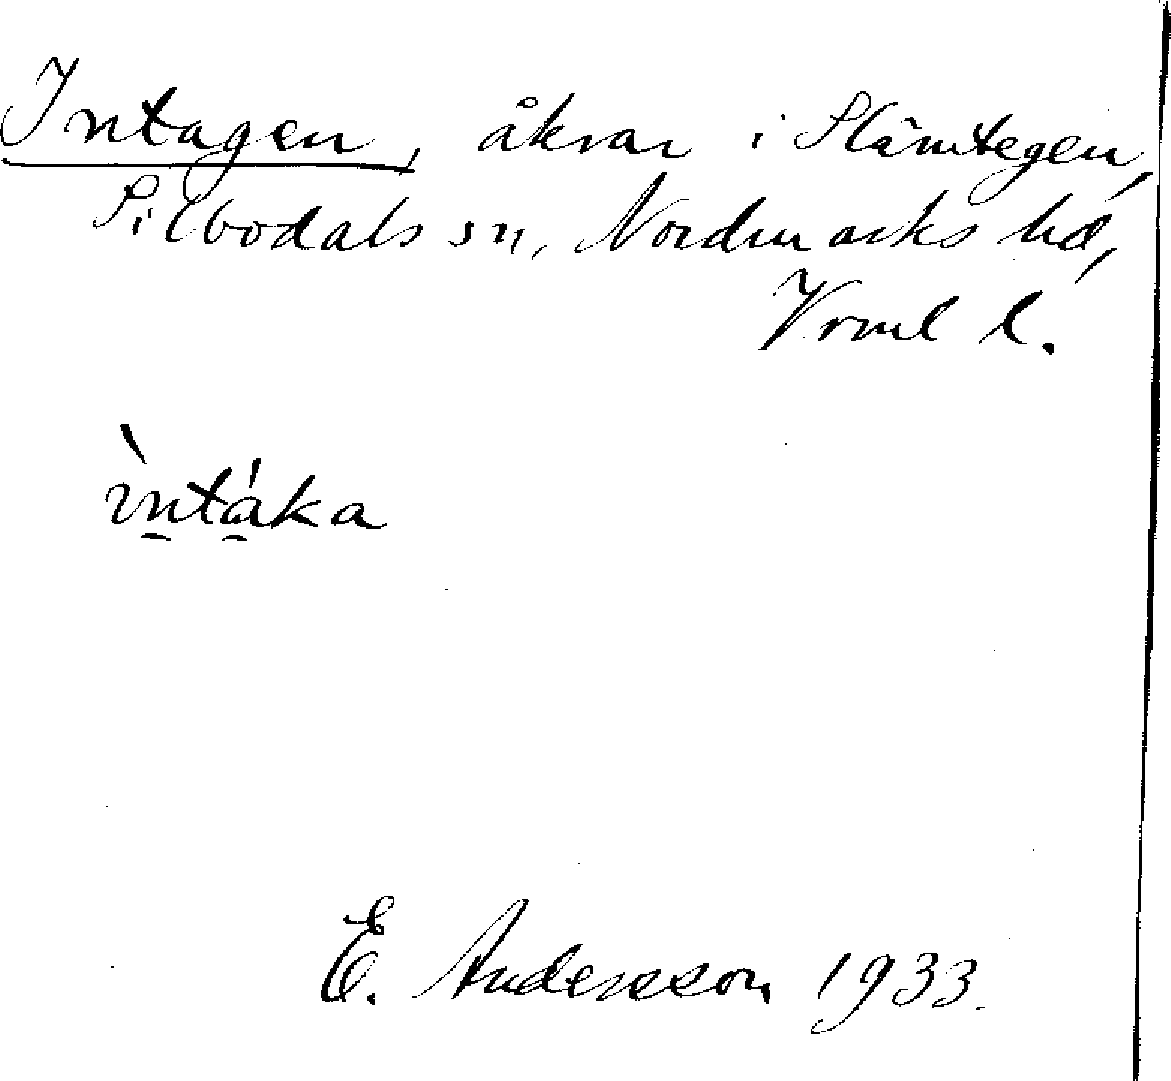 Intagen, åkrar i Slämtegen,
Silbodals sn, Nordmarks hd,
Vrml l.
ìntáka
E. Andersson 1933.